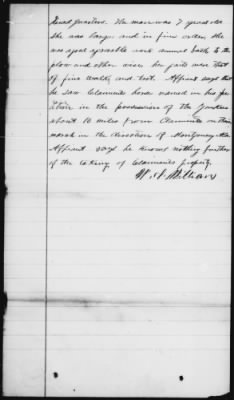 The mare was 7 years old
She was large and in fine order, she
was good sprable and sound both to the
plow and other wise. her gaits were that
of fine walk, and trot. Affiant says that
he saw Claimants horse named in his pe-
tition in the possession of the Yankees
about 10 miles from Claimants on their
march in the direction of Montgomery Ala
Affiant says he knows nothing further
of the taking of Claimants property.